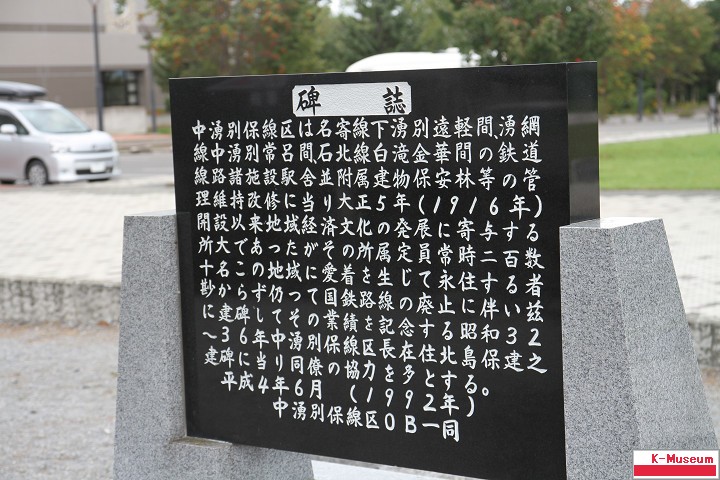 碑　誌
中湧別保線区は名寄線下湧別遠軽間、湧網
線中湧別常呂間石北線白滝金華間の鉄道
線路諸施設駅舎並附属建物保安林等の管
理維持改修に当り大正5年(1916年)
開設以来地域経済文化の発展に寄与する
所大であったがその所属定員常時二百数
十名この地域に愛着を生じて永住する者
尠からず仍って国鉄路線の廃止に伴い茲
に建碑してその業績を記念する 昭和32
～36年中湧別保線区長在住北島保之建
建碑に当り同僚の協力を多とする。
平成4年6月(1992年)
中湧別保線区OB一同
K-Museum